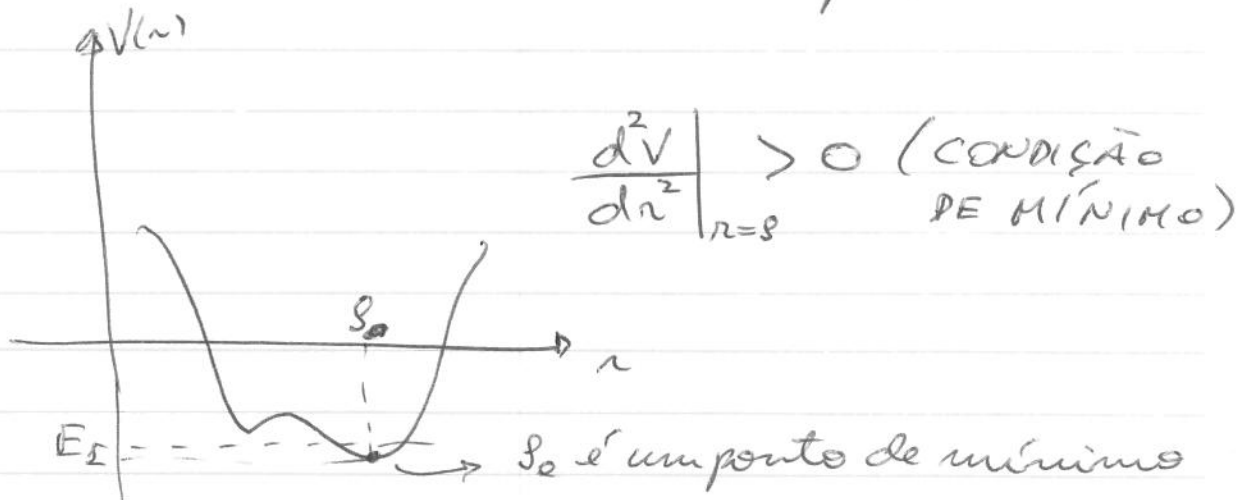 V(r)
d²V/dr² |r=ρ > 0 (CONDIÇÃO
DE MÍNIMO)
ρ₀
r
E₁
ρ₀ é um ponto de mínimo